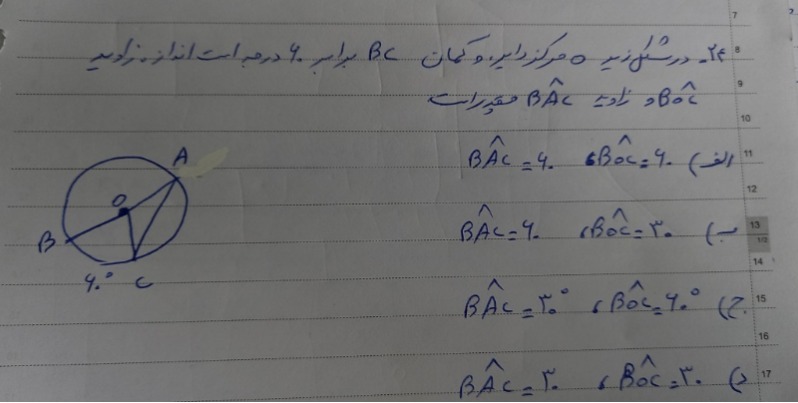 ۲۴- در شکل زیر O مرکز دایره و کمان BC برابر ۶۰ درجه است اندازه زاویه
BOC و زاویه BAC چقدر است
الف) BOC = ۶۰ ، BAC = ۶۰
ب) BOC = ۳۰ ، BAC = ۶۰
ج) BOC = ۶۰° ، BAC = ۳۰°
د) BOC = ۳۰ ، BAC = ۳۰
A
O
B
۶۰° C
7
8
9
10
11
12
13
1/2
14
15
16
17